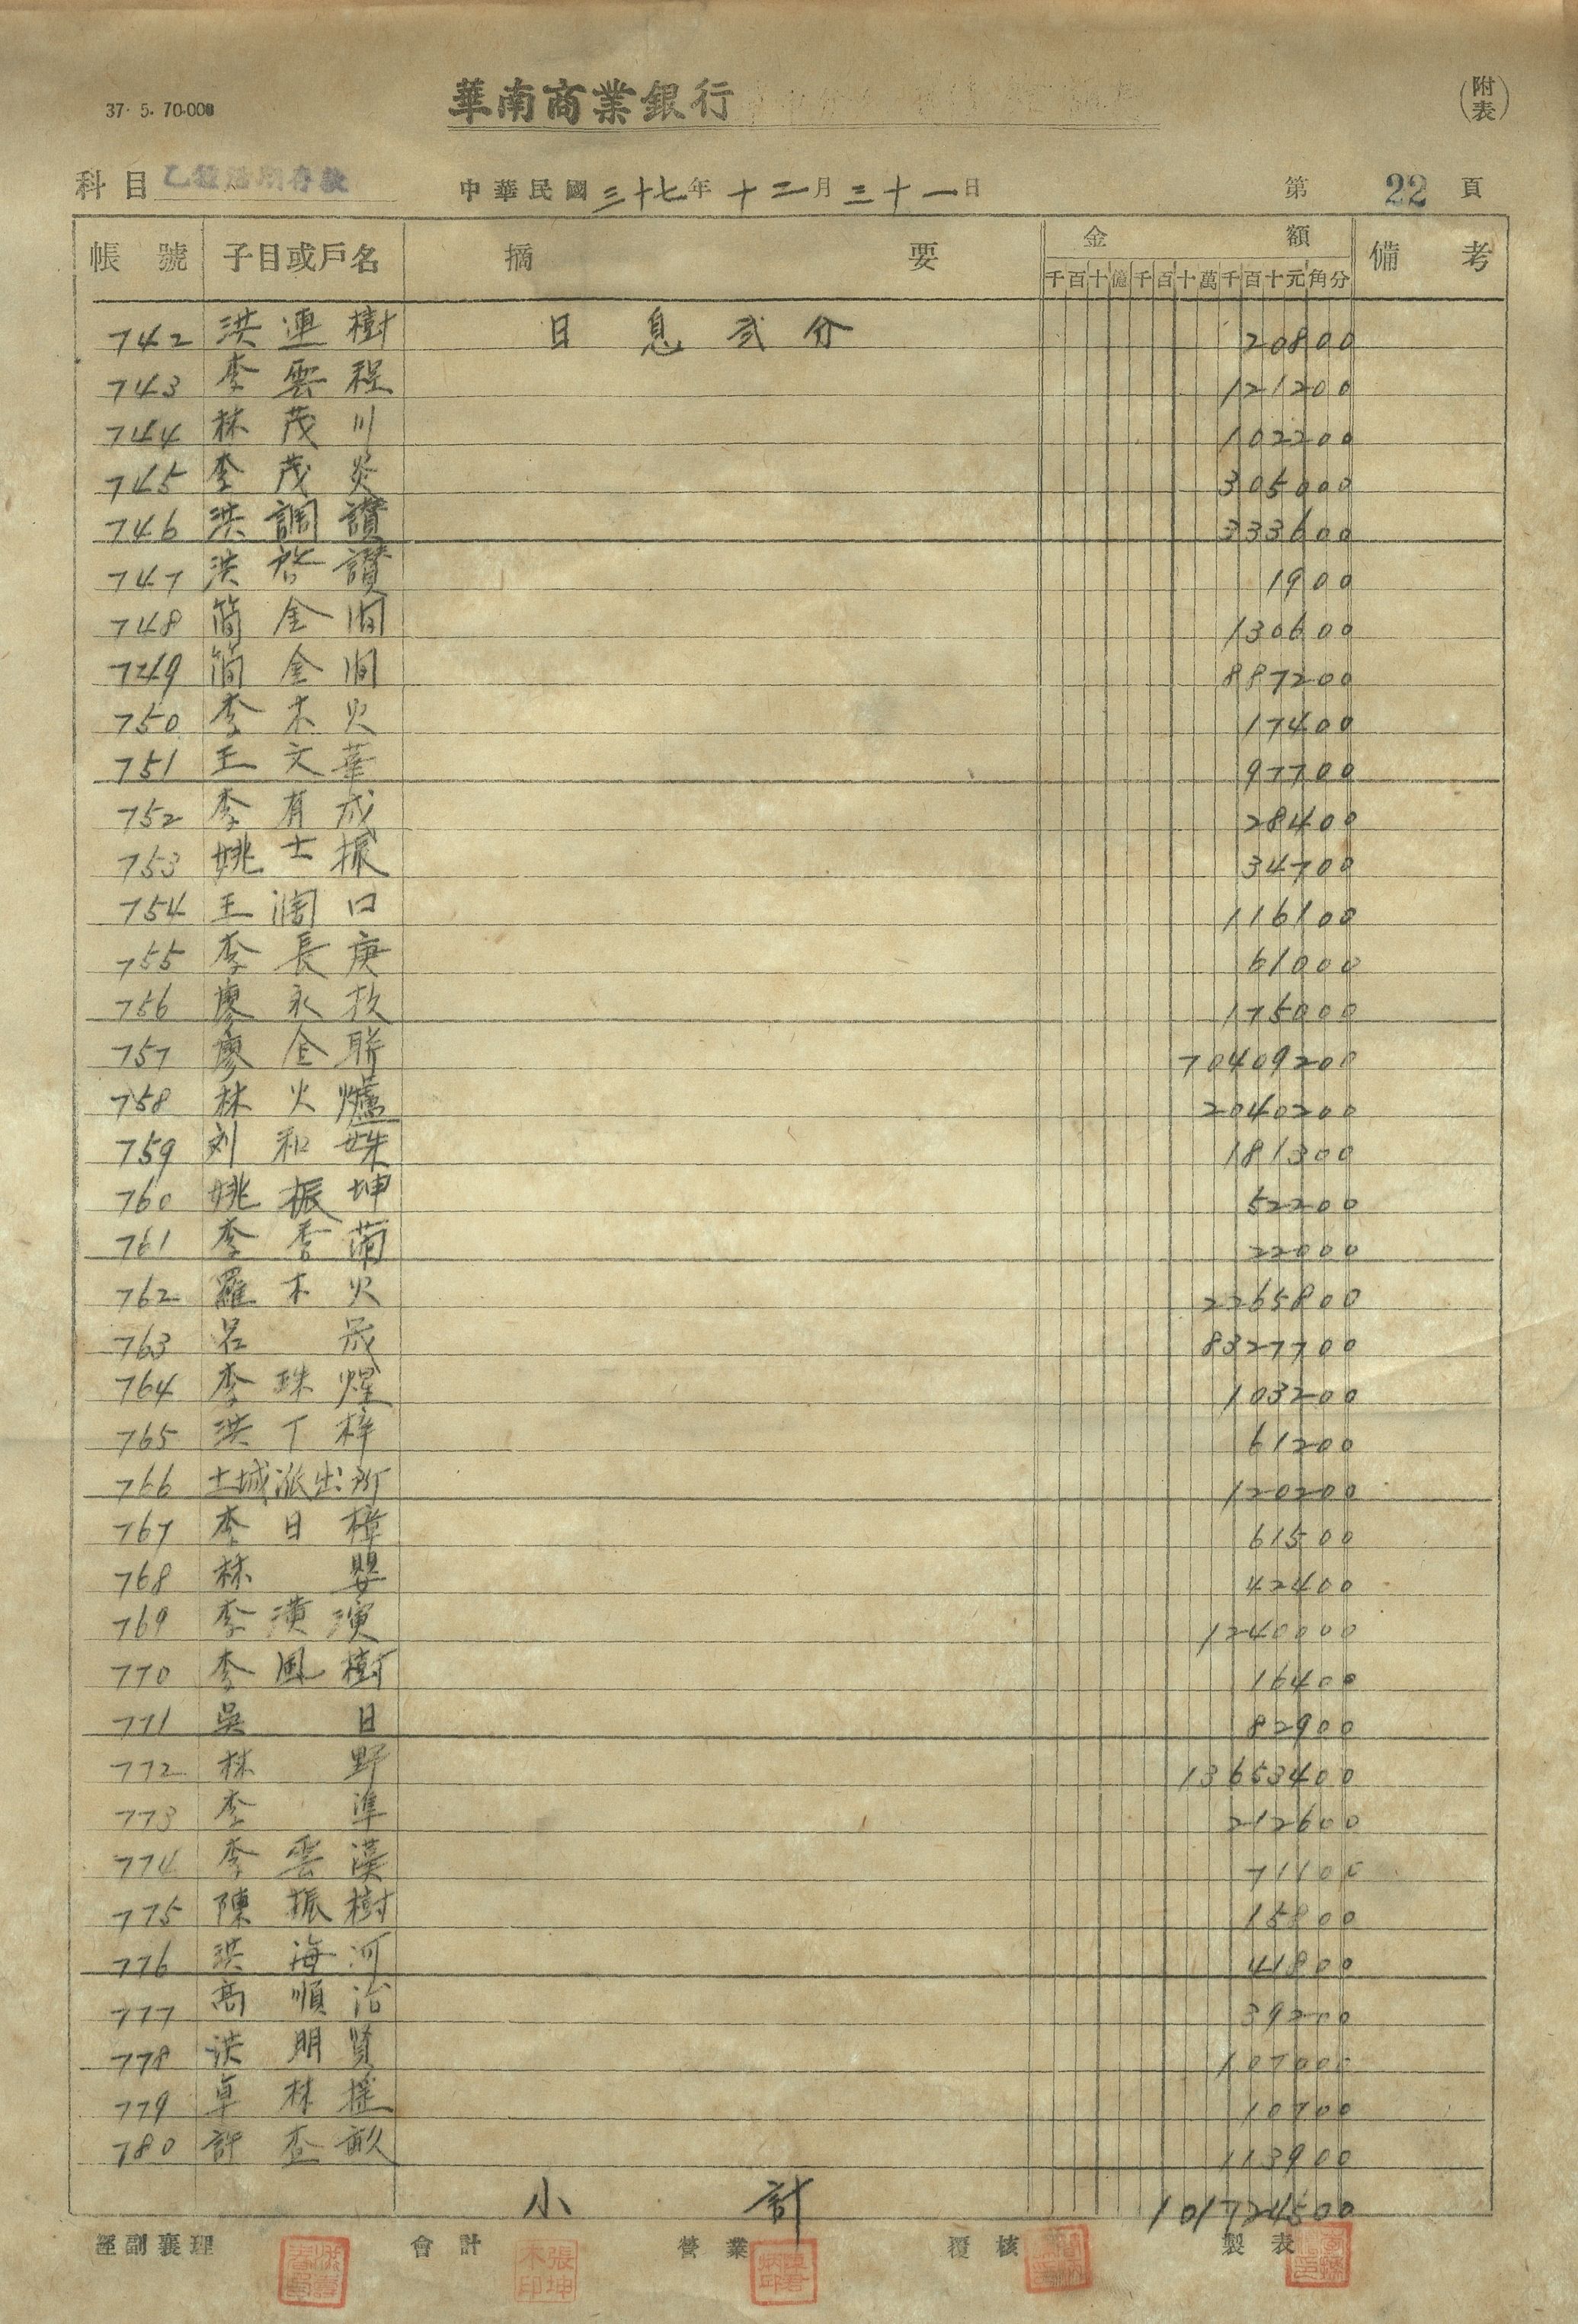 37. 5. 70.000
華南商業銀行
(附表)
科目 乙種活期存款 中華民國三十七年十二月三十一日 第 22 頁
帳號 子目或戶名 摘要 金額 備考
千百十億千百十萬千百十元角分
742 洪連樹 日息弍分 20800
743 李雲程 121200
744 林茂川 102200
745 李茂炎 305000
746 洪調讚 333600
747 洪啓讚 1900
748 簡金澗 130600
749 簡金澗 887200
750 李木火 17400
751 王文華 97700
752 李有成 28400
753 姚士振 34700
754 王濶口 116100
755 李長庚 61000
756 廖永枚 175000
757 廖金聯 70409200
758 林火爐 2040200
759 刘和妹 181300
760 姚振坤 52200
761 李香蘭 22000
762 羅木火 2265800
763 呂成 8327700
764 李珠煌 103200
765 洪丁梓 61200
766 土城派出所 120200
767 李日樟 61500
768 林嬰 42400
769 李潢演 1240000
770 李風樹 16400
771 吳日 82900
772 林野 13653400
773 李準 212600
774 李雲漢 71100
775 陳振樹 15800
776 洪海河 41800
777 高順治 39200
778 洪明賢 107000
779 卓林搖 10700
780 許畝 113900
小計 101724500
經副襄理 會計 營業 覆核 製表
張坤木印